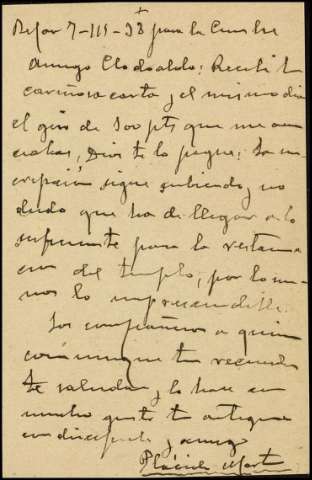 +
Bejar 7-III-38 para la Cumbre
Amigo Clodoaldo: Recibí tu
cariñosa carta y el mismo dia
el giro de 500 pts que me anun
ciabas, Dios te lo pague; la sus
cripción sigue subiendo, y no
dudo que ha de llegar a lo
suficiente para la restaura
cion del templo, por lo me
nos lo imprescindible.
Los compañeros a quien
comuniqué tu recuerdo
te saludan, y lo hace con
mucho gusto tu antiguo
condiscipulo y amigo
Plácido Mart